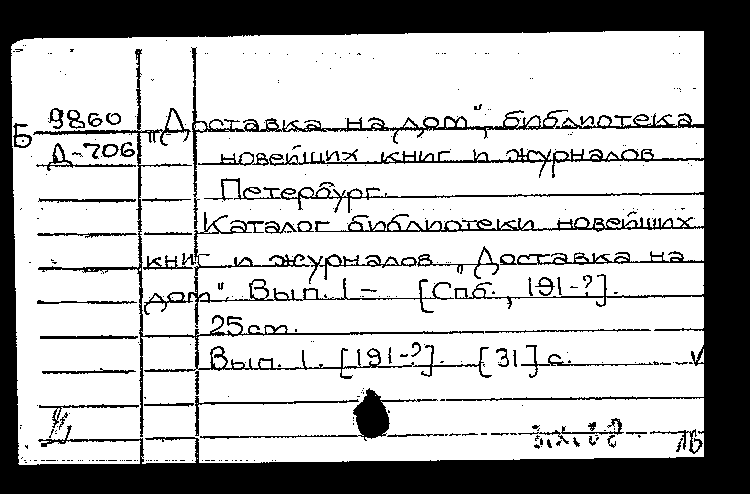 Б 9860 „Доставка на дом", библиотека
Д-706 новейших книг и журналов
Петербург.
Каталог библиотеки новейших
книг и журналов „Доставка на
дом". Вып. 1 – [Спб., 191-?].
25 cm.
Вып. 1. [191-?]. [31] с. V